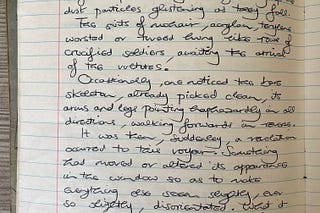 dust particles glistening as they fell.
The sists of mohair, acrylan, terylene
worsted or tweed hung like rows of
crucified soldiers, awaiting the arrival
of the vultures.
Occasionally, one noticed the bare
skeleton, already picked clean, its
arms and legs pointing haphazardly in all
directions, walking forwards in reverse.
It was then, suddenly, a revelation
occurred to this voyeur. Something
had moved or altered its appearance
in the window so as to make
everything else seem slightly, ever
so slightly, disorientated. What it